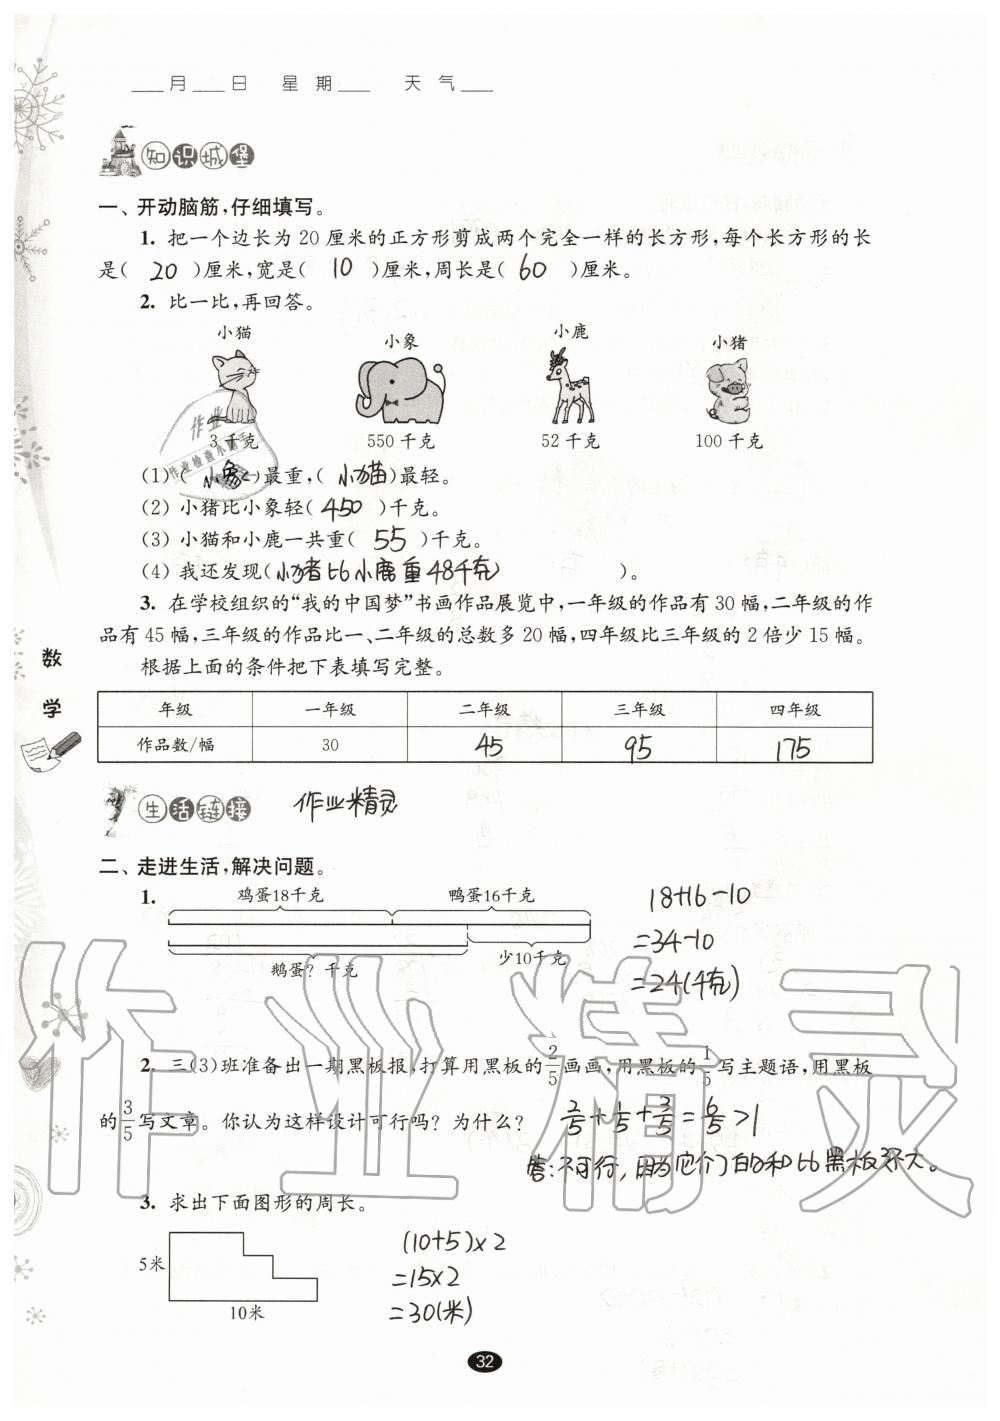 ___月___日 星期___ 天气___
知识城堡
一、开动脑筋,仔细填写。
1. 把一个边长为 20 厘米的正方形剪成两个完全一样的长方形,每个长方形的长
是( 20 )厘米,宽是( 10 )厘米,周长是( 60 )厘米。
2. 比一比,再回答。
小猫 小象 小鹿 小猪
3 千克 550 千克 52 千克 100 千克
作业
作业检查小助手
(1) ( 小象 )最重,( 小猫 )最轻。
(2) 小猪比小象轻( 450 )千克。
(3) 小猫和小鹿一共重( 55 )千克。
(4) 我还发现( 小猪比小鹿重48千克 )。
3. 在学校组织的“我的中国梦”书画作品展览中,一年级的作品有 30 幅,二年级的作
品有 45 幅,三年级的作品比一、二年级的总数多 20 幅,四年级比三年级的 2 倍少 15 幅。
根据上面的条件把下表填写完整。
数学
年级 一年级 二年级 三年级 四年级
作品数/幅 30 45 95 175
生活链接 作业精灵
二、走进生活,解决问题。
1. 鸡蛋18千克 鸭蛋16千克
少10千克
鹅蛋? 千克
18+16-10
=34-10
=24(千克)
2. 三(3)班准备出一期黑板报,打算用黑板的2/5画画,用黑板的1/5写主题语,用黑板
的3/5写文章。你认为这样设计可行吗? 为什么? 2/5+1/5+3/5=6/5>1
答:不可行,因为它们的和比黑板还大。
3. 求出下面图形的周长。
5米
10米
(10+5)×2
=15×2
=30(米)
32
作业精灵